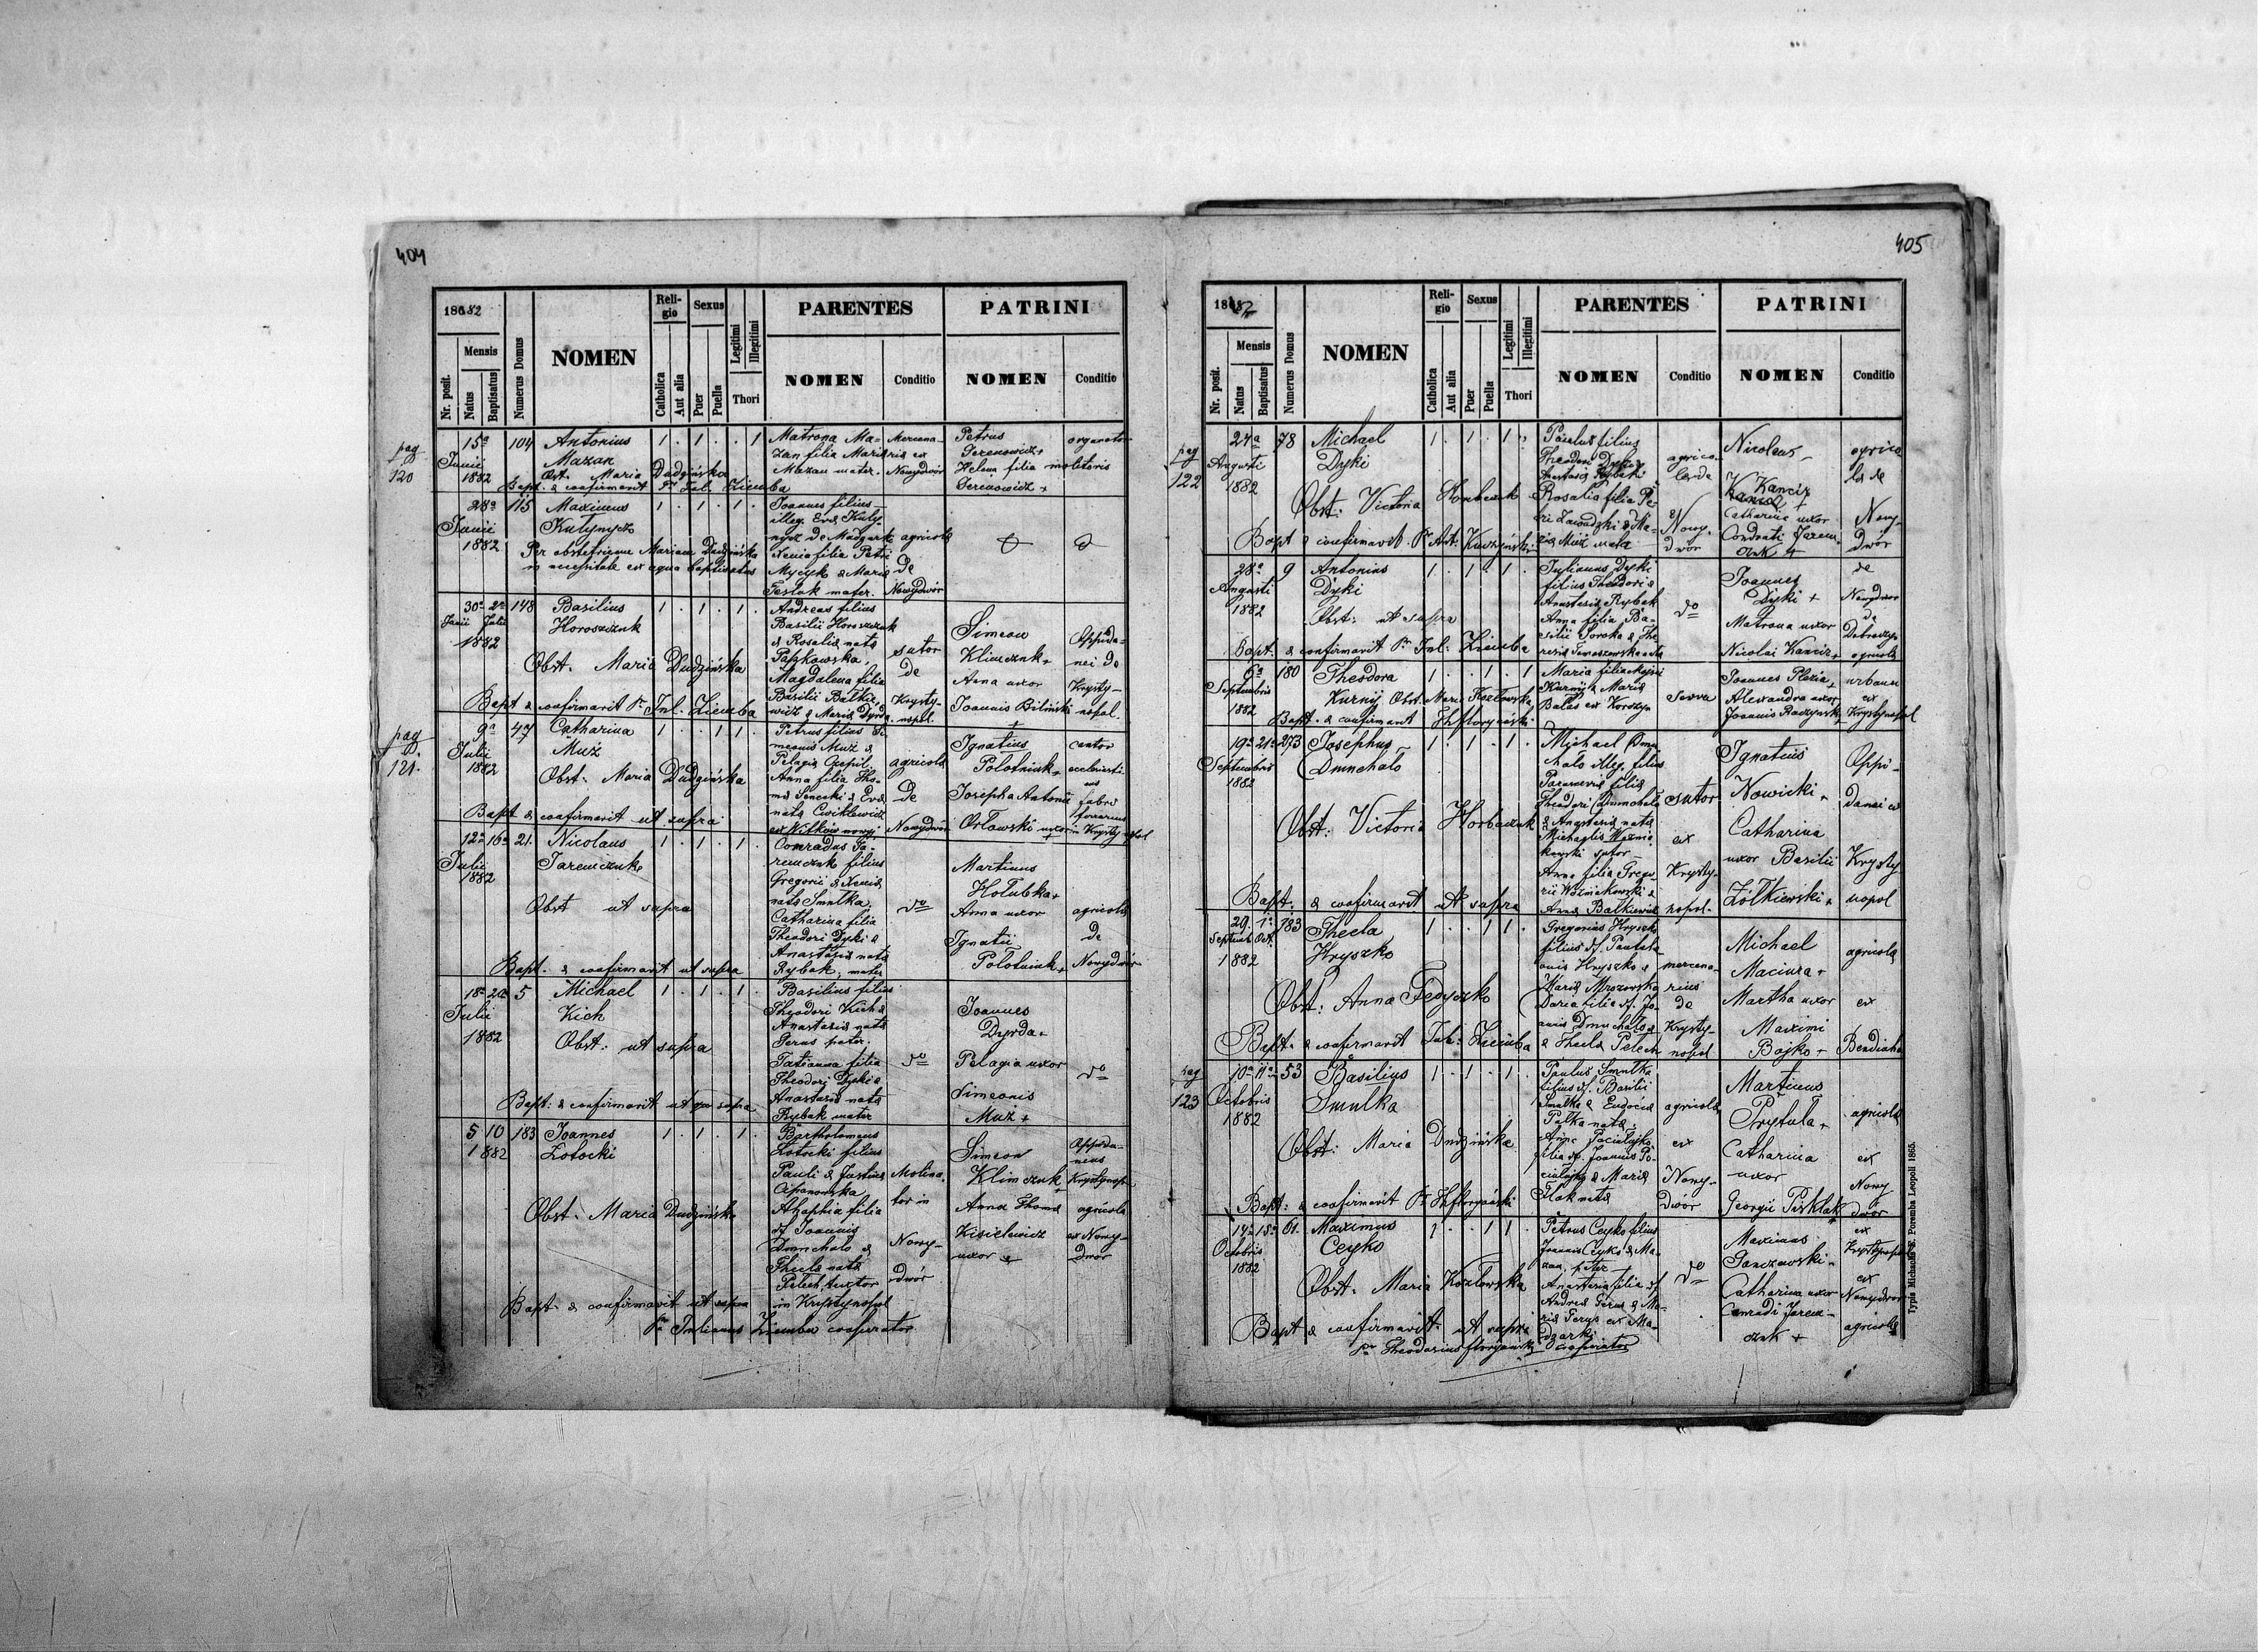 404
1882
Nr. posit.
Mensis
Natus
Baptisatus
Numerus Domus
NOMEN
Religio
Catholica
Aut alia
Sexus
Puer
Puella
Legitimi
Illegitimi
Thori
PARENTES
NOMEN
Conditio
PATRINI
NOMEN
Conditio
pag
120
15a Junii 1882
104
Antonius
Mazan
1 . 1 . . 1
Obst. Maria Dudzińska
Bapt. & confirmavit Pr Jul. Ziemba
Matrona Ma-
zan filia Mariae
Mazan mater.
Mercena-
ria ex
Nowydwór
Petrus
Terenowicz +
Helena filia molitoris
Terenowicz +
organator
28a Junii 1882
115
Maximus
Kutynycz
1 . 1 . 1 .
Per obstetricem Mariam Dudzińska
in necessitate ex aqua baptisatus
Joannes filius
illeg. Eva Kuty-
nycz de Madzarki
Xenia filia Petri
Mycyk & Maria
Teslak mater.
agricola
de
Nowydwór
30a 2a
Junii Julii
1882
148
Basilius
Horoszczuk
1 . 1 . 1 .
Obst. Maria Dudzińska
Bapt & confirmavit Pr Jul. Ziemba
Andreas filius
Basilii Horoszczuk
& Rosalia nata
Papkowska,
Magdalena filia
Basilii Batkie-
wicz & Maria Dyrda
sutor
de
Krysty-
nopol.
Simeon
Klimczuk +
Anna uxor
Joannis Biliński
+
Oppida-
nei de
Krysty-
nopol.
pag
121.
9a Julii 1882
47
Catharina
Muż
1 . . 1 1 .
Obst. Maria Dudzińska
Bapt & confirmavit ut supra
Petrus filius Si-
meonis Muż &
Anna filia Tho-
ma & Eva
nata Cwiklewicz
ex Witków nowy
agricola
de
Nowydwór
Ignatius
Polotniuk +
Josepha Antonii
Orłowski uxor
cantor
ecclesiasti-
cus
fabri
ferrarius
in Krystynopol
12a 16a Julii 1882
21.
Nicolaus
Jaremczuk
1 . 1 . 1 .
Obst ut supra
Bapt. & confirmavit ut supra
Conradus Ja-
remczuk filius
Gregorii & Xenia
nata Smulka,
Catharina filia
Theodori Dyki &
Anastasia nata
Rybak, mater
do
Martinus
Hołubka +
Anna uxor
Ignatii
Polotniuk +
agricola
de
Nowydwór
18a 20a Julii 1882
5
Michael
Kich
1 . 1 . 1 .
Obst: ut supra
Bapt: & confirmavit ut supra
Basilius filius
Theodori Kich &
Anastasia nata
Gerus pater.
Tatianna filia
Theodori Dyki &
Anastasia nata
Rybak mater
do
Joannes
Dyrda +
Pelagia uxor
Simeonis
Muż +
do
5 10
1882
183
Joannes
Łotocki
1 . 1 . 1 .
Obst. Maria Dudzińska
Bapt. & confirmavit ut supra
Bartholomeus
Łotocki filius
Pauli & Justina
Cipanowska
Ahaphia filia
df Joannis
Dmuchalo &
Thecla nata
Petech, tutor
in Krystynopol
Molina-
tor in
Nowy-
dwór
Simeon
Klimczuk +
Anna Thoma
Kisielewicz
uxor +
Oppida-
neus
Krystynop.
agricola
ex Nowy-
dwór
Pr Julianus Ziemba cooperator
405
1882
Nr. posit.
Mensis
Natus
Baptisatus
Numerus Domus
NOMEN
Religio
Catholica
Aut alia
Sexus
Puer
Puella
Legitimi
Illegitimi
Thori
PARENTES
NOMEN
Conditio
PATRINI
NOMEN
Conditio
pag
122
24a Augusti 1882
78
Michael
Dyki
1 . 1 . 1 .
Obst: Victoria Horbaczuk
Bapt & confirmavit. Pr Ant:
Paulus filius
Theodori Dyki &
Anastasia Rybak
Rosalia filia Pe-
tri Zawadzki & Ma-
ria Muż nata
agrico-
la de
Nowy-
dwór
Nicolaus
Kancir
Catharine uxor
Condrati Jarem-
czuk +
agrico-
la de
Nowy-
dwór
28a Augusti 1882
9
Antonius
Dyki
1 . 1 . 1 .
Obst: ut supra
Bapt. & confirmavit Pr Jul: Ziemba
Julianus Dyki
filius Theodori &
Anastasia Rybak
Anna filia Ba-
silii Soroka & The-
resia
do
Joannes
Dyki +
Matrona uxor
Nicolai Kancir +
de
Nowydwor
de
agricola
6a Septembris 1882
180
Theodora
Kurnij
1 . . 1 . 1
Obst. Mar: Kozłowska
Bapt. & confirmavit
Maria filia
Kurnij & Maria
Balas ex Korczyn
serva
Joannes +
Alexandra uxor
Joannis Raczyński
urbanu
ex
Krystynopol
19a 21a Septembris 1882
273
Josephus
Dmuchalo
1 . 1 . 1 .
Obst: Victoria Horbaczuk
Bapt. & confirmavit ut supra
Michael Dmu-
chalo illeg. filius
Parascevia filia
Theodori Dmuchalo
& Anastasia nata
Michaelis Woznia-
kowski sutor
Anna filia Grego-
rii Wozniakowski &
Anna Batkiewicz
sutor
ex
Krysty-
nopol.
Ignatius
Nowicki +
Catharina
uxor Basilii
Żółkiewski +
Oppi-
danei ex
Krysty-
nopol
29. 1a
Septemb. Oct.
1882
183
Thecla
Hryszko
1 . . 1 1 .
Obst: Anna Fedyczko
Bapt. & confirmavit Jul: Ziemba
Gregorius Hryszko
filius df.
Hryszko &
Maria Mrozowska
Daria filia df. Jo-
annis Dmuchalo
& Thecla Petech
mercena-
rius
de
Krysty-
nopol
Michael
Maciura +
Martha uxor
Maximi
Bojko +
agricola
ex
Bendiucha
pag
123
10a 11a Octobris 1882
53
Basilius
Smulka
1 . 1 . 1 .
Obst: Maria Dudzińska
Bapt: & confirmavit Pr
Paulus Smulka
filius df. Basilii
Smulka & Eudocia
Palka nata;
filia df. Joannis Po-
& Maria
nata
agricola
ex
Nowy-
Dwór
Martinus
Prytula +
Catharina
uxor
Georgii
agricola
ex
Nowy
dwór
14a 15a Octobris 1882
61.
Maximus
Ceyko
1 . . 1 1 .
Obst. Maria Kozłowska
Bapt & confirmavit ut supra
Petrus Ceyko filius
Joannis Ceyko & Ma-
zan, pater
Anastasia filia df
Andrea Gerus & Ma-
ria Gerus ex Ma-
dzarki
do
Maximus
Ganczawski
Catharina uxor
Conradi Jarem-
czuk +
ex
Krystynopol
ex
Nowydwor
agricola
Pr Theodosius cooperator
Typis Michaelis F. Poremba Leopoli 1865.